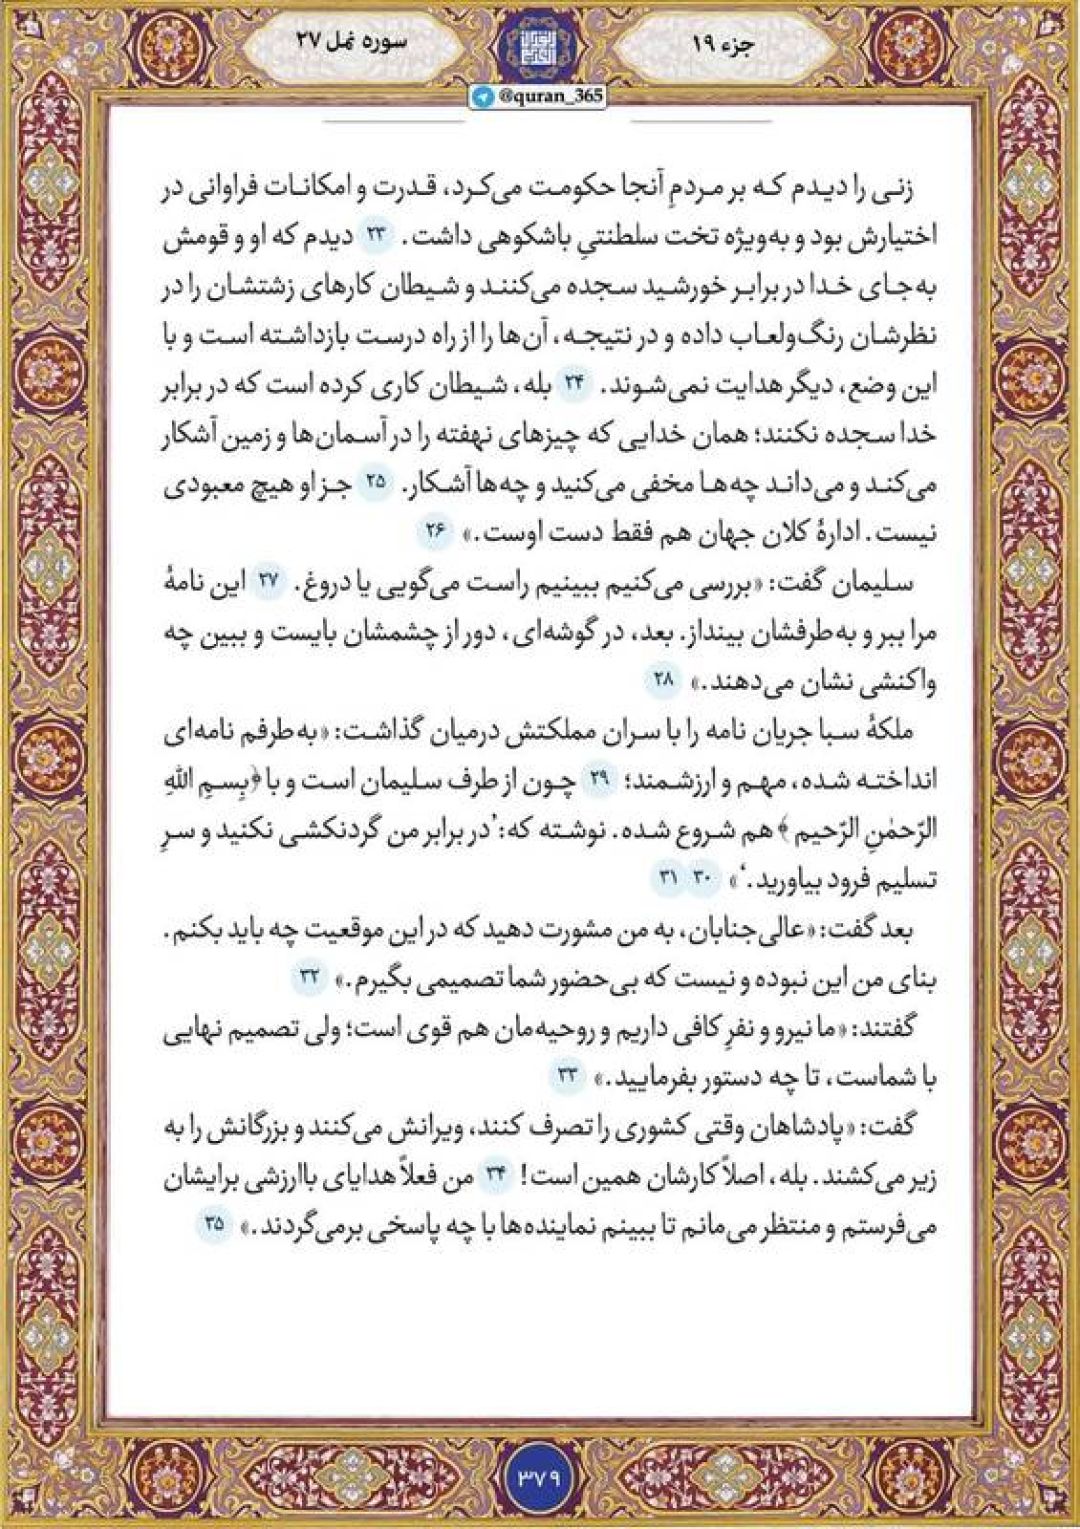 جزء ۱۹
سوره نمل ۲۷
@quran_365
زنی را دیدم که بر مردمِ آنجا حکومت می‌کرد، قدرت و امکانات فراوانی در
اختیارش بود و به‌ویژه تخت سلطنتیِ باشکوهی داشت. ۲۳ دیدم که او و قومش
به‌جای خدا در برابر خورشید سجده می‌کنند و شیطان کارهای زشتشان را در
نظرشان رنگ‌ولعاب داده و در نتیجه، آن‌ها را از راه درست بازداشته است و با
این وضع، دیگر هدایت نمی‌شوند. ۲۴ بله، شیطان کاری کرده است که در برابر
خدا سجده نکنند؛ همان خدایی که چیزهای نهفته را در آسمان‌ها و زمین آشکار
می‌کند و می‌داند چه‌ها مخفی می‌کنید و چه‌ها آشکار. ۲۵ جز او هیچ معبودی
نیست. ادارهٔ کلان جهان هم فقط دست اوست.» ۲۶
سلیمان گفت: «بررسی می‌کنیم ببینیم راست می‌گویی یا دروغ. ۲۷ این نامهٔ
مرا ببر و به‌طرفشان بینداز. بعد، در گوشه‌ای، دور از چشمشان بایست و ببین چه
واکنشی نشان می‌دهند.» ۲۸
ملکهٔ سبا جریان نامه را با سران مملکتش درمیان گذاشت: «به‌طرفم نامه‌ای
انداخته شده، مهم و ارزشمند؛ ۲۹ چون از طرف سلیمان است و با ﴿بِسمِ اللهِ
الرّحمٰنِ الرّحیم﴾ هم شروع شده. نوشته که: ‘در برابر من گردنکشی نکنید و سرِ
تسلیم فرود بیاورید.’» ۳۰ ۳۱
بعد گفت: «عالی‌جنابان، به من مشورت دهید که در این موقعیت چه باید بکنم.
بنای من این نبوده و نیست که بی‌حضور شما تصمیمی بگیرم.» ۳۲
گفتند: «ما نیرو و نفرِ کافی داریم و روحیه‌مان هم قوی است؛ ولی تصمیم نهایی
با شماست، تا چه دستور بفرمایید.» ۳۳
گفت: «پادشاهان وقتی کشوری را تصرف کنند، ویرانش می‌کنند و بزرگانش را به
زیر می‌کشند. بله، اصلاً کارشان همین است! ۳۴ من فعلاً هدایای باارزشی برایشان
می‌فرستم و منتظر می‌مانم تا ببینم نماینده‌ها با چه پاسخی برمی‌گردند.» ۳۵
۳۷۹